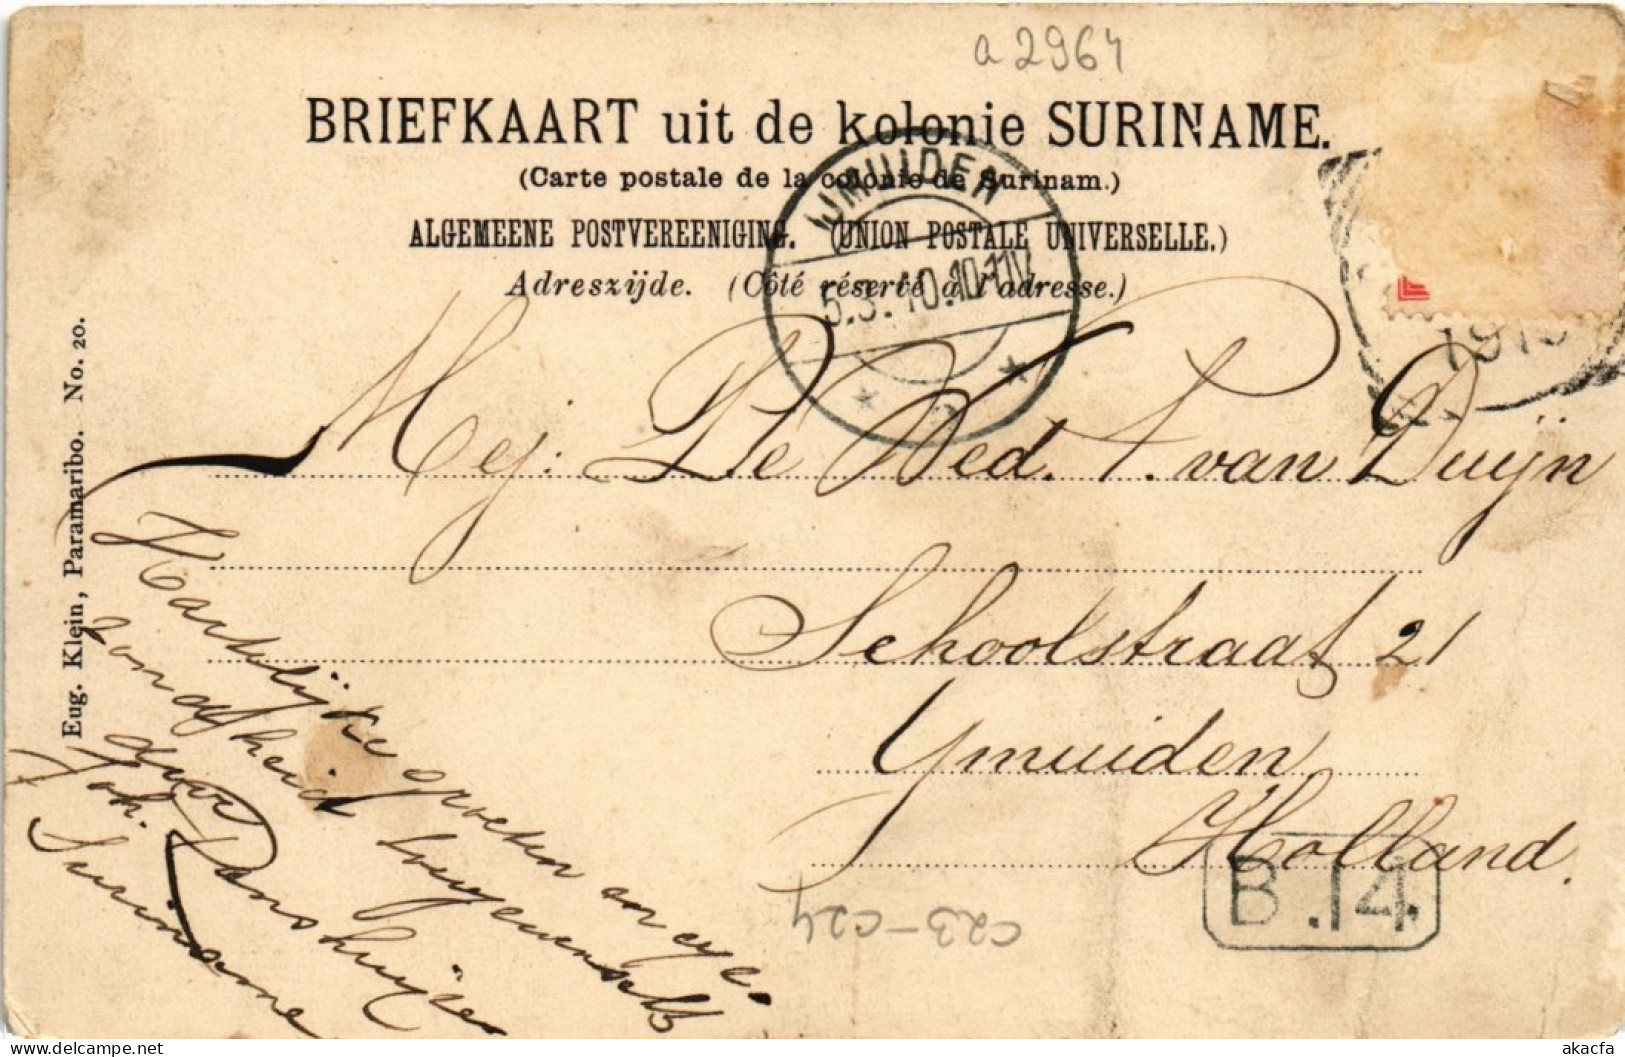 a 2964
BRIEFKAART uit de kolonie SURINAME.
(Carte postale de la colonie de Surinam.)
ALGEMEENE POSTVEREENIGING. (UNION POSTALE UNIVERSELLE.)
Adreszijde. (Côté réservé à l'adresse.)
IJMUIDEN
5.3.10.10-11V
Mej: De Wed. A. van Duijn
Schoolstraat 21
Ymuiden
Holland.
B.14.
C23-C24
Hartelijke groeten en
gezondheid toegewenscht
door
Joh. Danshuijzen
Suriname
Eug. Klein, Paramaribo. No. 20.
akacfa